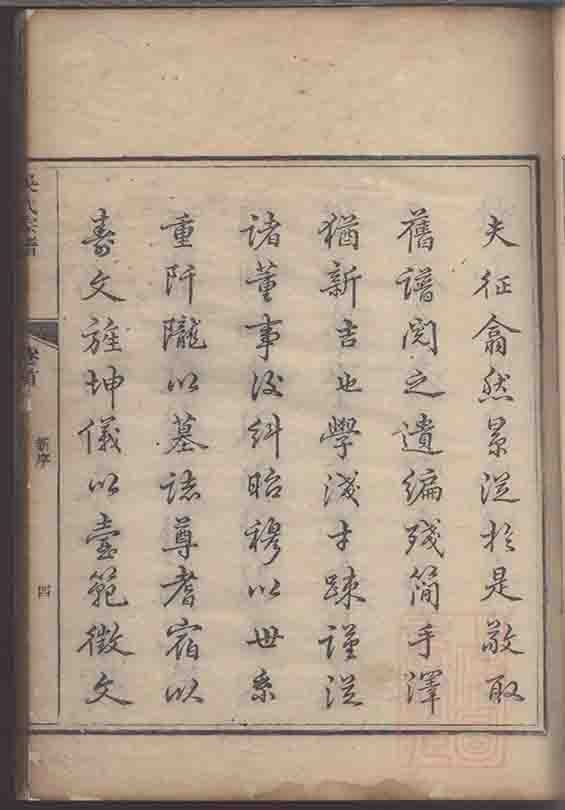 夫征翕然景從於是敬取
舊譜閱之遺編殘簡手澤
猶新吉也學淺才疎謹從
諸董事後糾昭穆以世系
重阡隴以墓誌尊耆宿以
壽文旌坤儀以壼範徵文
吳氏宗譜
卷首
新序
四